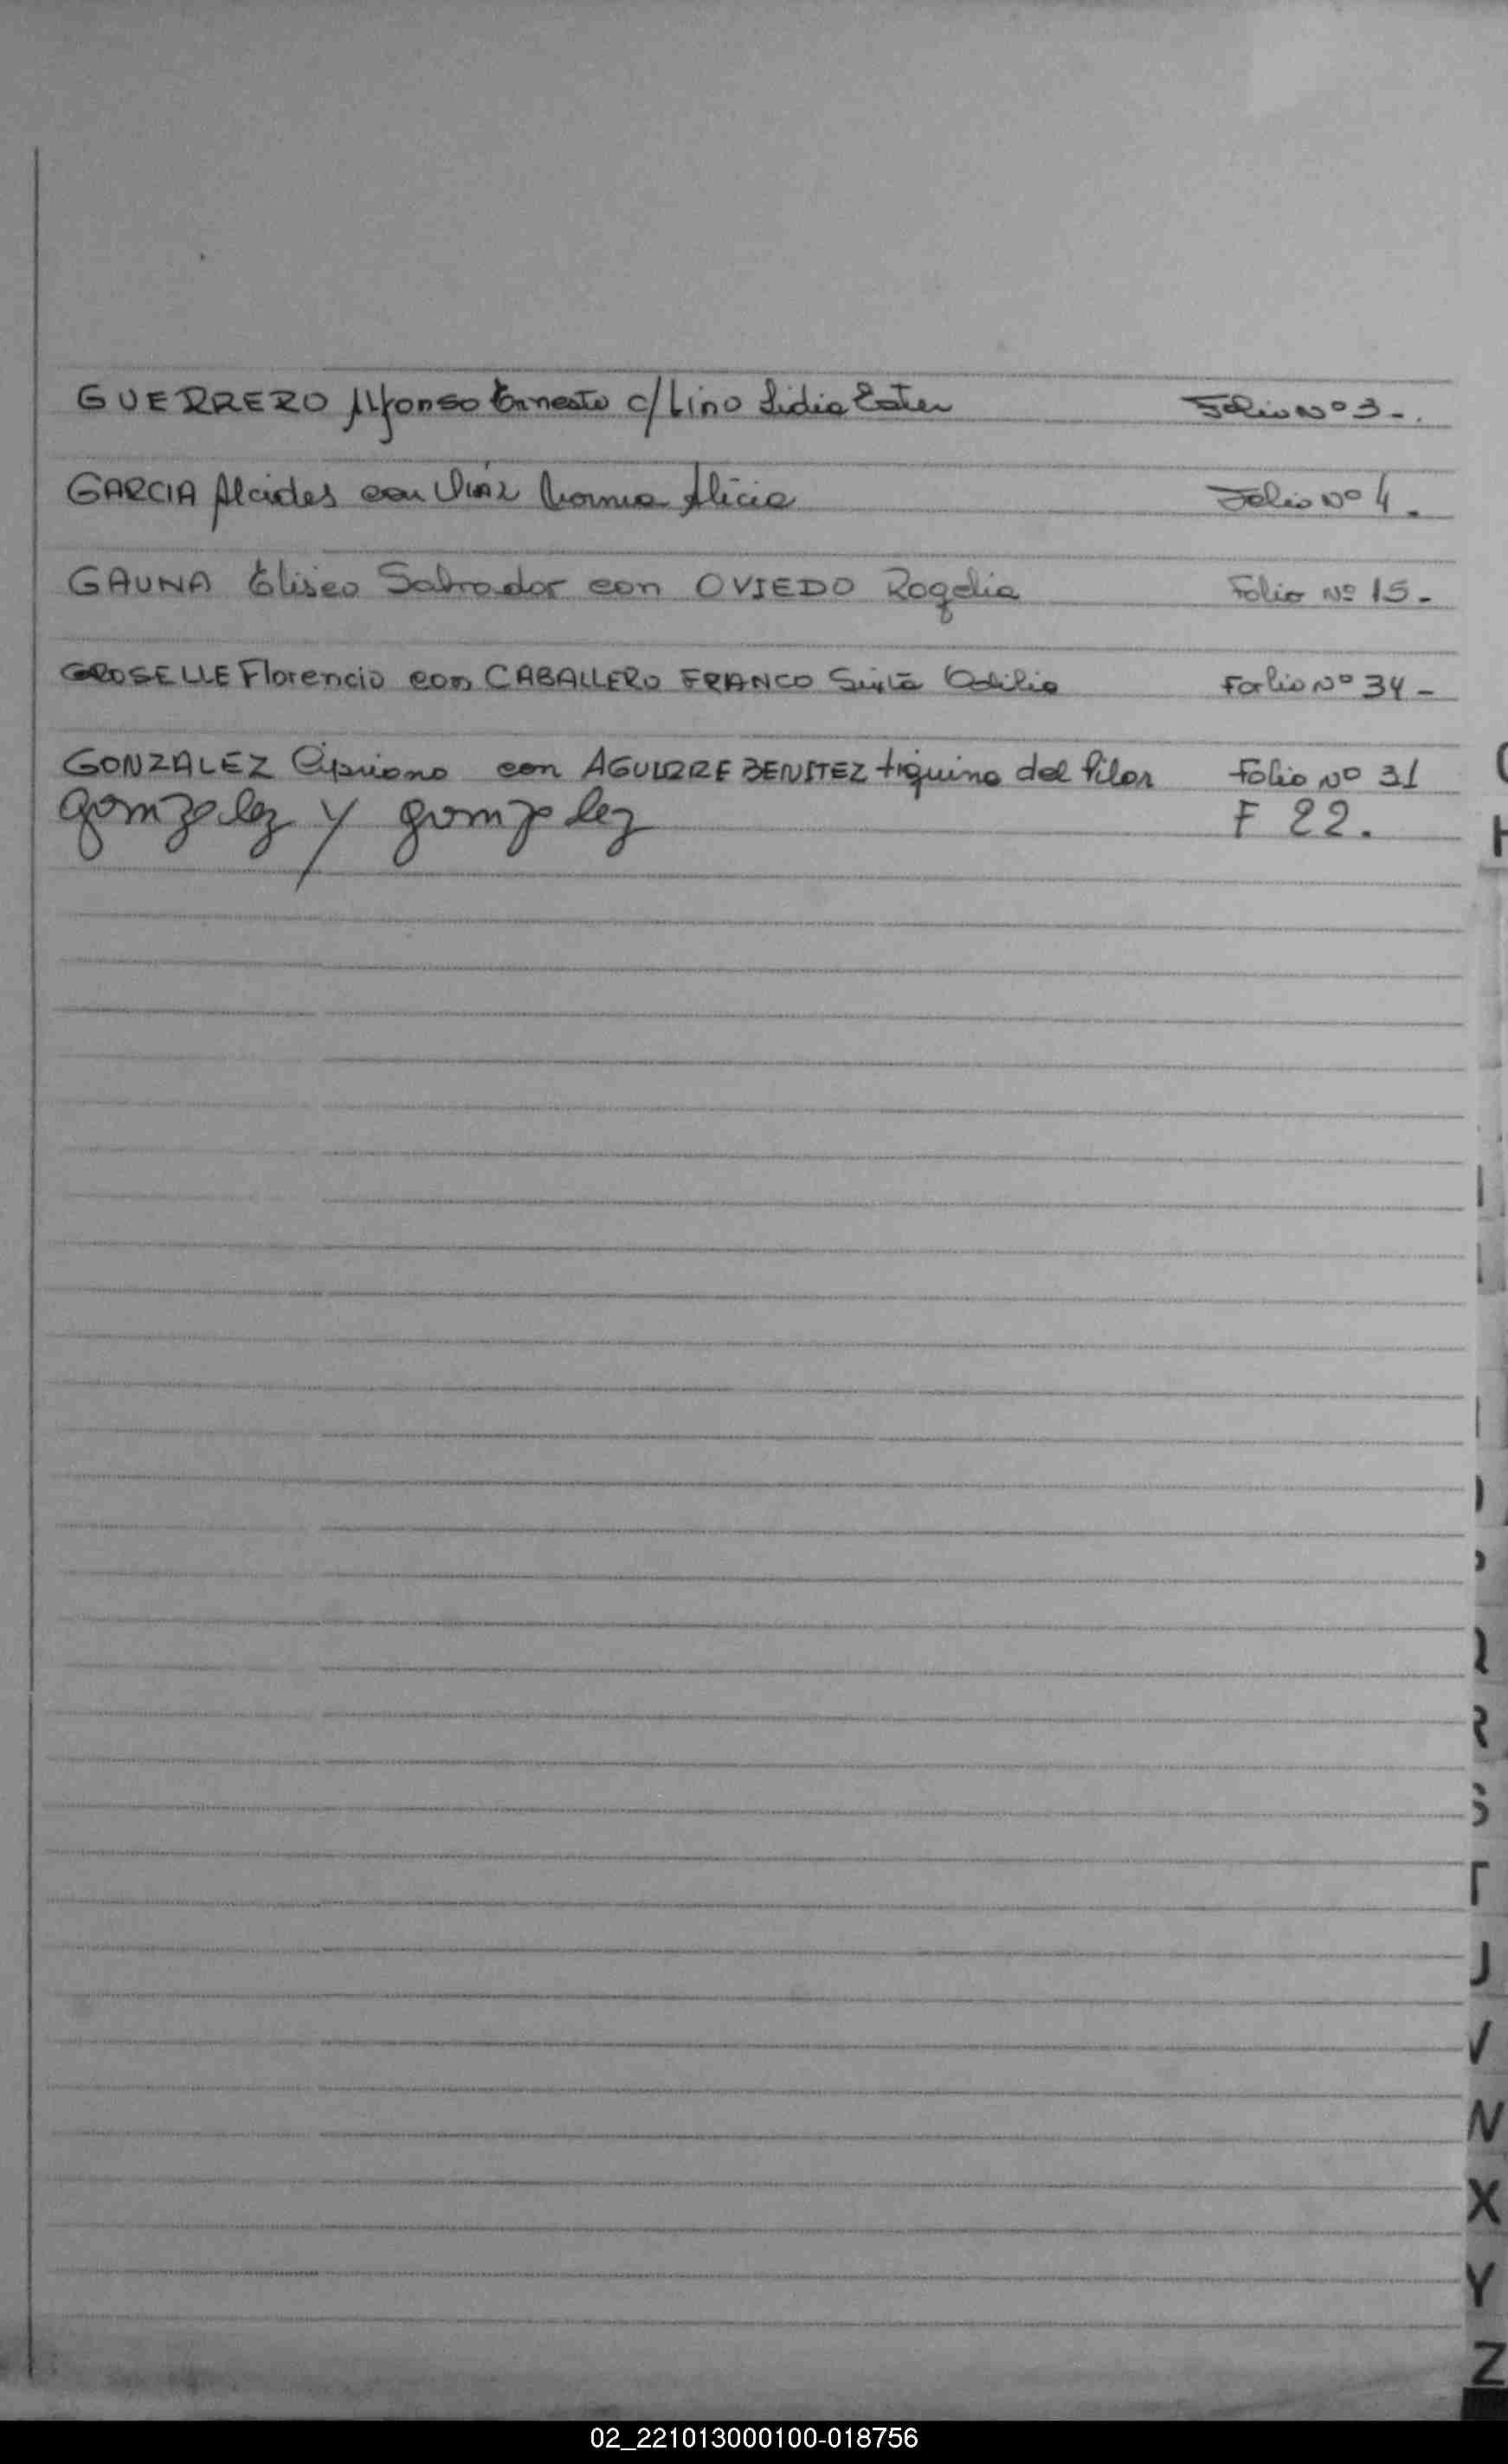 GUERRERO Alfonso Ernesto c/ Lino Lidia Ester Folio Nº 3-.
GARCIA Alcides con Diaz Norma Alicia Folio Nº 4.
GAUNA Eliseo Salvador con OVIEDO Rogelia Folio Nº 15-
GROSELLE Florencio con CABALLERO FRANCO Sixta Odilia Folio Nº 34-
GONZALEZ Cipriano con AGUIRRE BENITEZ del Pilar Folio Nº 31
gonzalez y gonzalez F 22.
H
Q
R
S
T
V
X
Y
Z
02_221013000100-018756